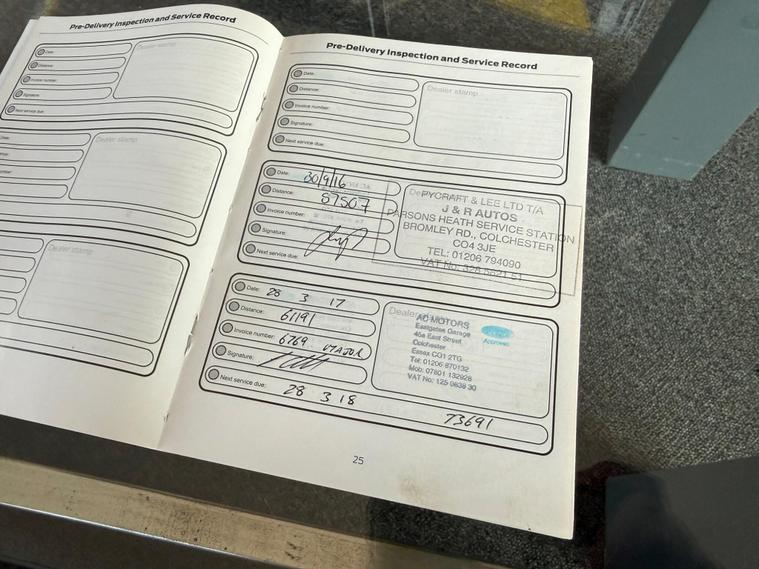 Pre-Delivery Inspection and Service Record
Date:
Distance:
Invoice number:
Signature:
Next service due:
Dealer stamp
Date:
Dealer stamp
Dealer stamp
Pre-Delivery Inspection and Service Record
Date:
Distance:
Invoice number:
Signature:
Next service due:
Dealer stamp
Date: 30/9/16
Distance: 59507
Invoice number:
Signature:
Next service due:
PYCRAFT & LEE LTD T/A
J & R AUTOS
PARSONS HEATH SERVICE STATION
BROMLEY RD., COLCHESTER
CO4 3JE
TEL: 01206 794090
VAT No:
Date: 28 3 17
Distance: 61191
Invoice number: 6769 MAJOR
Signature:
Next service due: 28 3 18
Dealer
AC MOTORS
Eastgates Garage
45a East Street
Colchester
Essex CO1 2TG
Tel: 01206 870132
Mob: 07801 132928
VAT No: 125 9638 30
Approved
73691
25